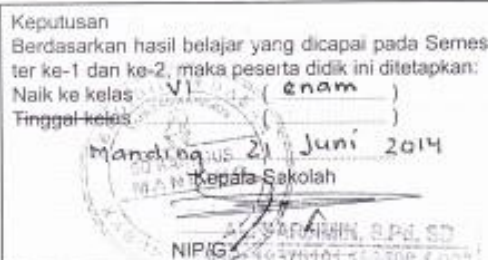 Keputusan
Berdasarkan hasil belajar yang dicapai pada Semes
ter ke-1 dan ke-2, maka peserta didik ini ditetapkan:
Naik ke kelas VI ( enam )
Tinggal kelas ( )
Manding 21 Juni 2014
Kepala Sekolah
SARAIMIN, S.Pd, SD
NIP/G